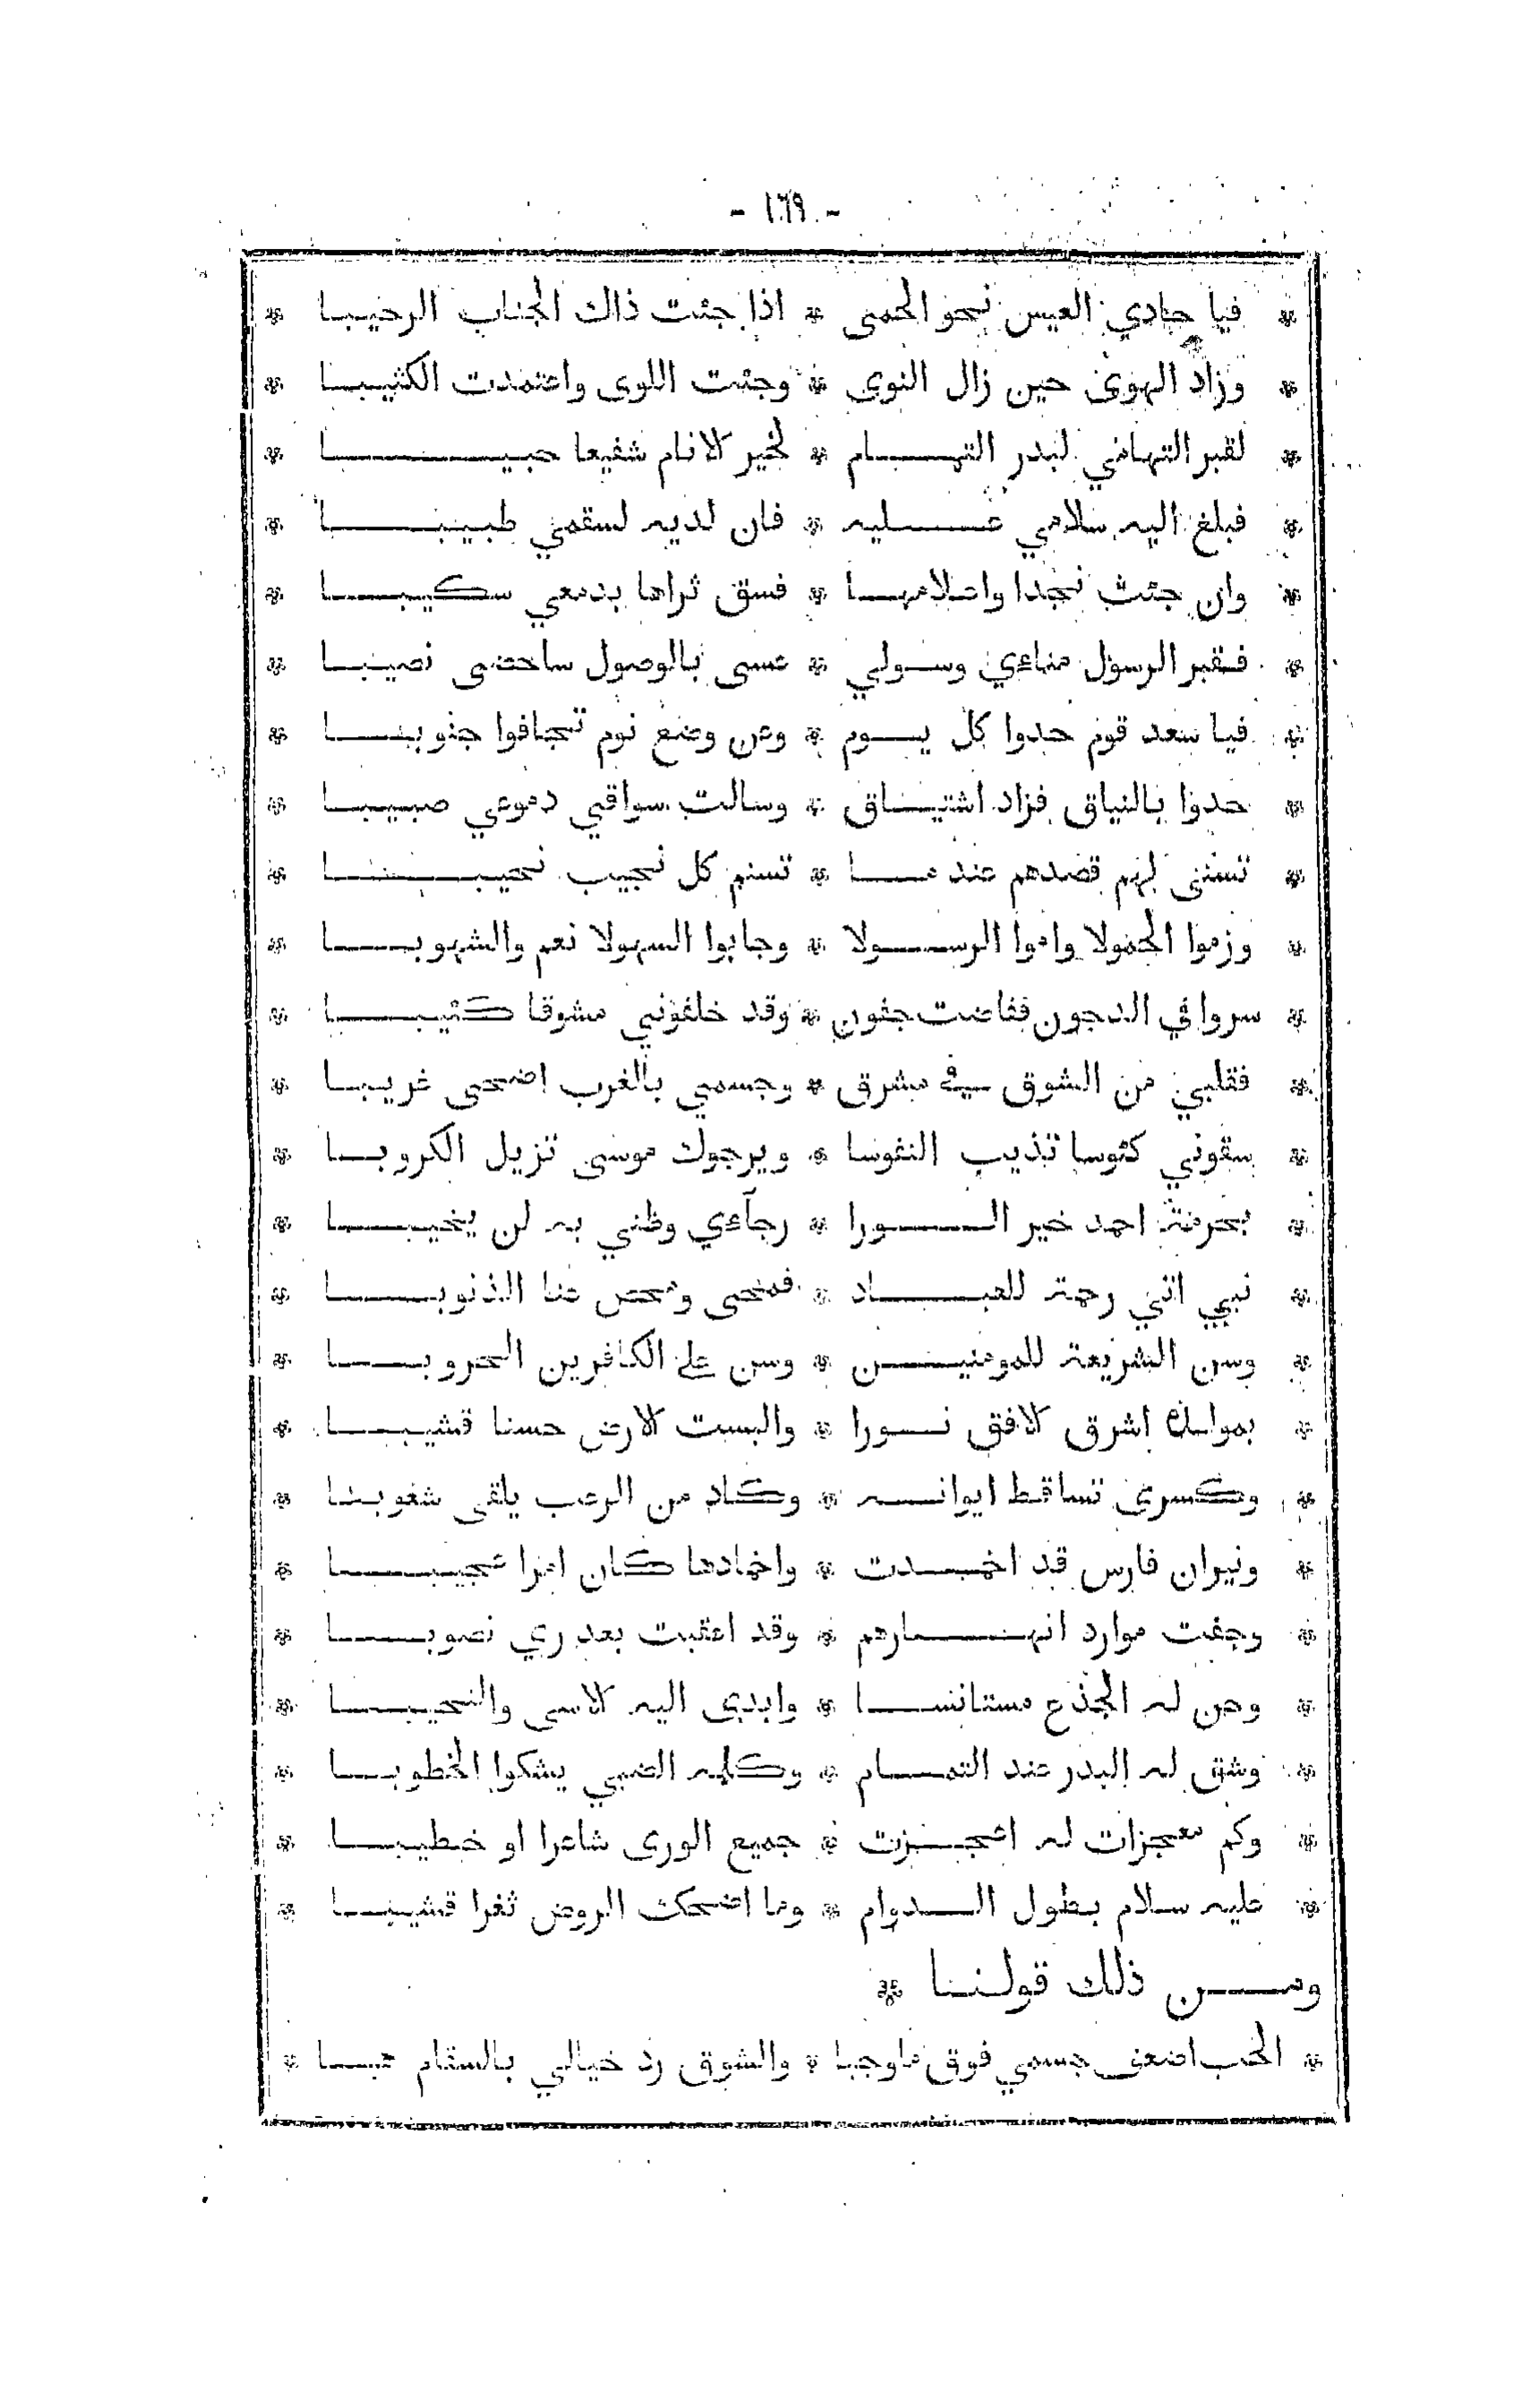 - ١٦٩ -
* فيا حادي العيس نحو الحمى * اذا جئت ذاك الجناب الرحيبا *
* وزاد الهوى حين زال النوى * وجئت اللوى واعتمدت الكثيبا *
* لقبر التهامي لبدر التهام * لخير الانام شفيعا حبيبا *
* فبلغ اليه سلامي عليه * فان لديه لسقمي طبيبا *
* وان جئت نجدا واعلامها * فسق ثراها بدمعي سكيبا *
* فقبر الرسول مناءي وسولي * عسى بالوصول ساحضى نصيبا *
* فيا سعد قوم حدوا كل يوم * وعن وضع نوم تجافوا جنوبا *
* حدوا بالنياق فزاد اشتياق * وسالت سواقي دموعي صبيبا *
* تسنى لهم قصدهم عند ما * تسنم كل نجيب نجيبا *
* وزموا الحمولا واموا الرسولا * وجابوا السهولا نعم والشهوبا *
* سروا في الدجون ففاضت جفون * وقد خلفوني مشوقا كئيبا *
* فقلبي من الشوق في مشرق * وجسمي بالغرب اضحى غريبا *
* سقوني كئوسا تذيب النفوسا * ويرجوك موسى تزيل الكروبا *
* بحرمة احمد خير الورا * رجآءي وظني به لن يخيبا *
* نبي اتى رحمة للعباد * فمحى ومحص عنا الذنوبا *
* وسن الشريعة للمومنين * وسن على الكافرين الحروبا *
* بمولده اشرق الافق نورا * والبست الارض حسنا قشيبا *
* وكسرى تساقط ايوانه * وكاد من الرعب يلقى شغوبا *
* ونيران فارس قد اخمدت * واخمادها كان امرا عجيبا *
* وجفت موارد انهارهم * وقد اعقبت بعد ري نصوبا *
* وحن له الجذع مستانسا * وابدى اليه الاسى والنحيبا *
* وشق له البدر عند التمام * وكلمه الضبي يشكوا الخطوبا *
* وكم معجزات له اعجزت * جميع الورى شاعرا او خطيبا *
* عليه سلام بطول الدوام * وما اضحك الروض ثغرا قشيبا *
ومن ذلك قولنا *
* الحب اضعف جسمي فوق ما وجبا * والشوق رد خيالي بالسقام هبا *